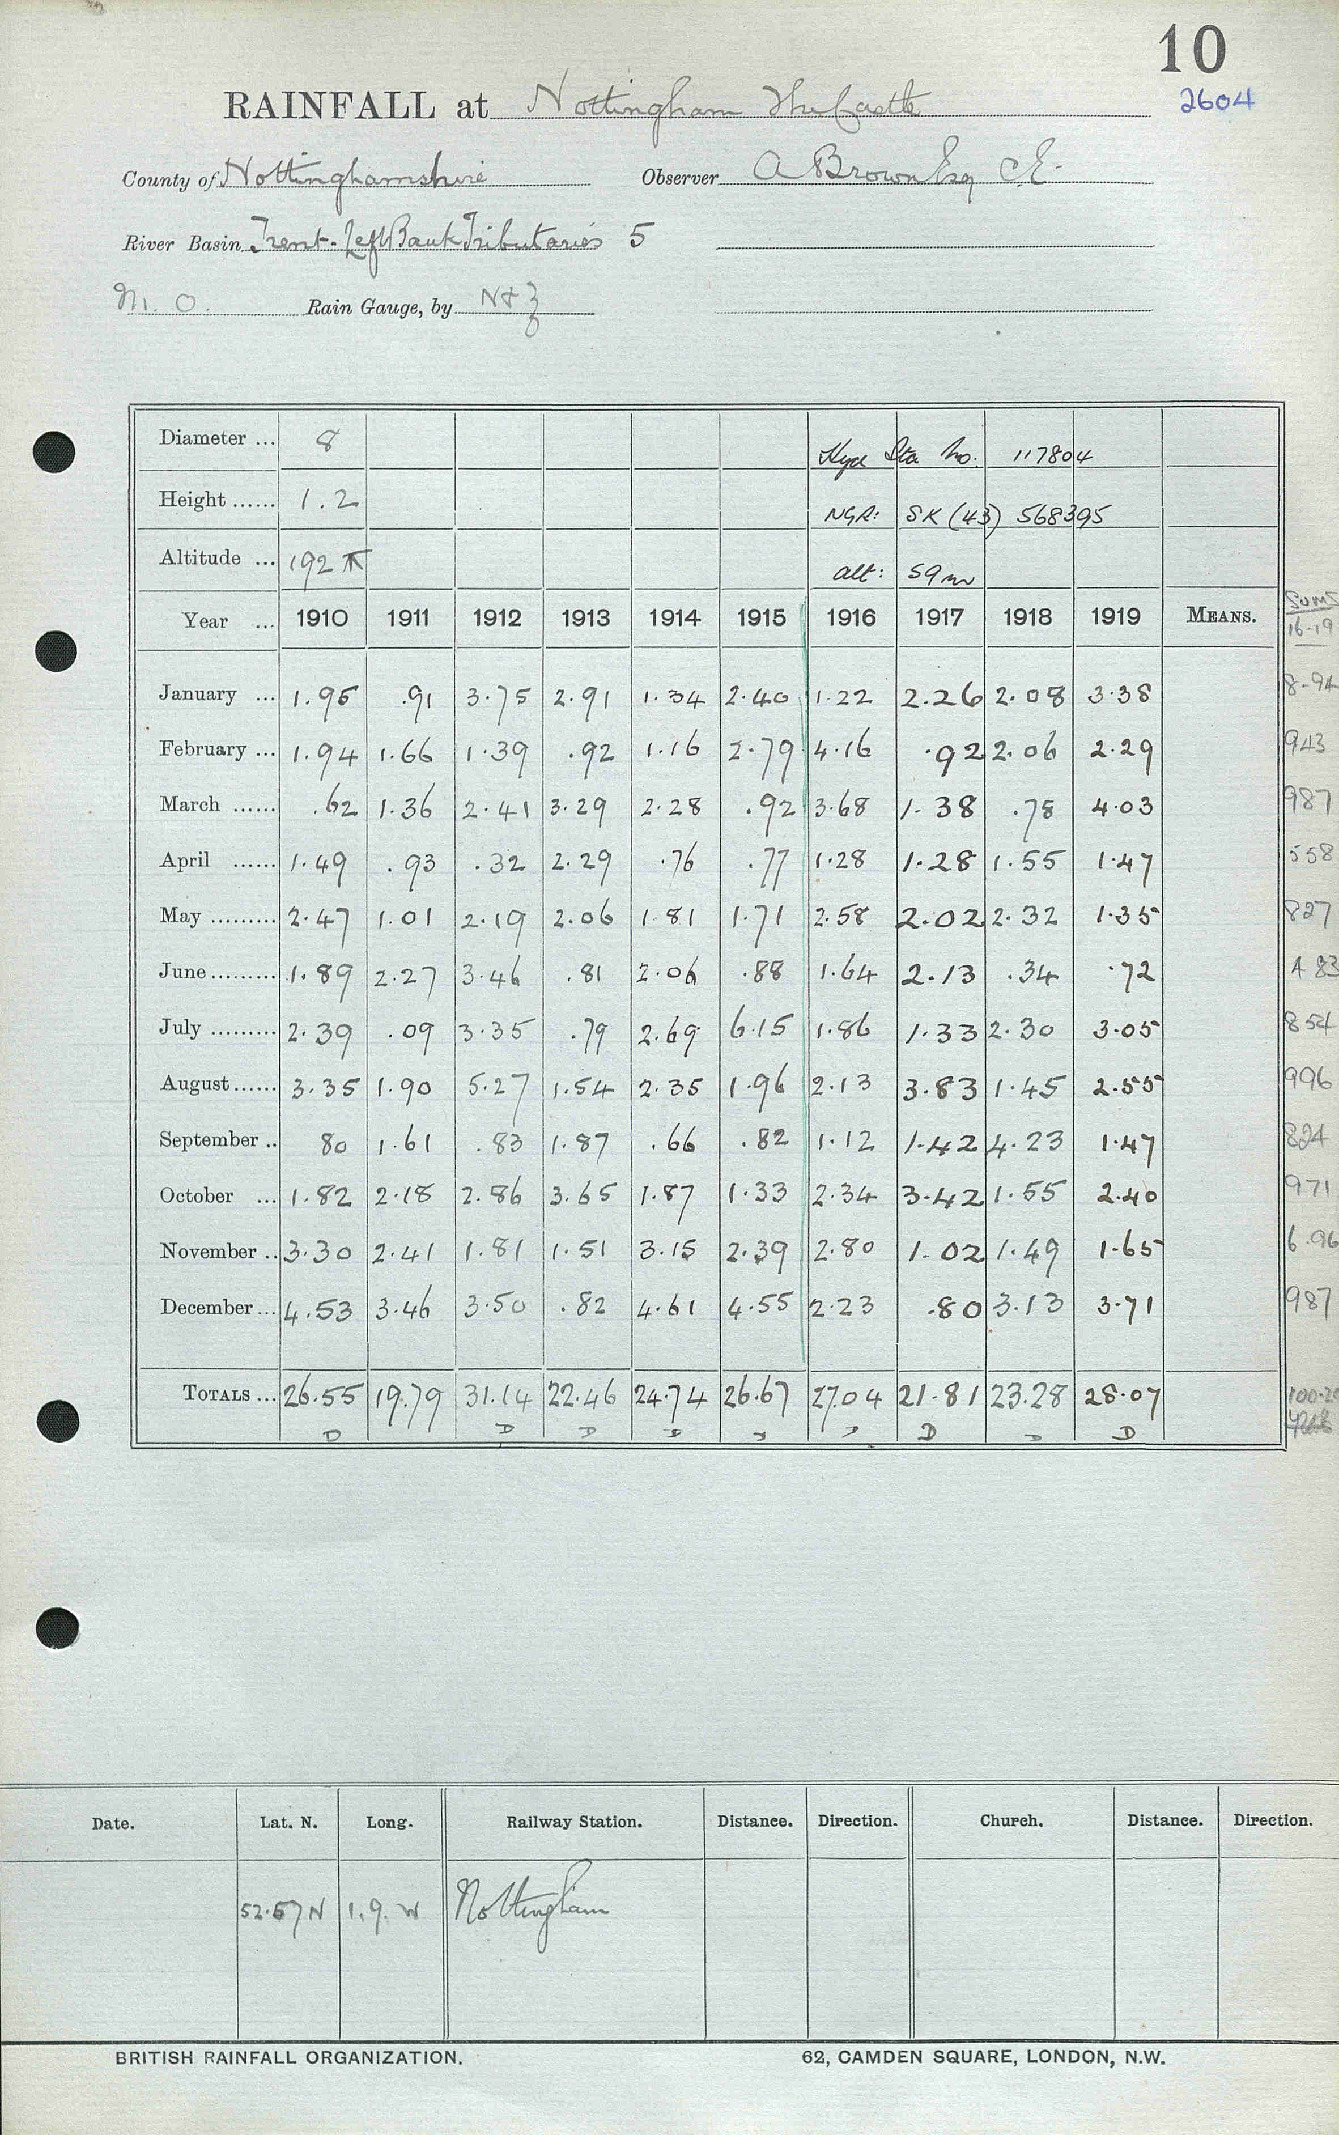 10
RAINFALL at Nottingham The Castle 2604
County of Nottinghamshire Observer A Brown Esq C.E.
River Basin Trent-Left Bank Tributaries 5
M. O. Rain Gauge, by N & Z
Diameter ... 8 Hyd Sta No. 117804
Height ...... 1.2 NGR: SK (43) 568395
Altitude ... 192 ft alt: 59m
Year ... 1910 1911 1912 1913 1914 1915 1916 1917 1918 1919 MEANS. Sums 16-19
January ... 1.95 .91 3.75 2.91 1.34 2.40 1.22 2.26 2.08 3.38 8.94
February ... 1.94 1.66 1.39 .92 1.16 2.79 4.16 .92 2.06 2.29 943
March ...... .62 1.36 2.41 3.29 2.28 .92 3.68 1.38 .78 4.03 987
April ...... 1.49 .93 .32 2.29 .76 .77 1.28 1.28 1.55 1.47 558
May ......... 2.47 1.01 2.19 2.06 1.81 1.71 2.58 2.02 2.32 1.35 827
June ......... 1.89 2.27 3.46 .81 2.06 .88 1.64 2.13 .34 .72 4 83
July ......... 2.39 .09 3.35 .79 2.69 6.15 1.86 1.33 2.30 3.05 854
August ...... 3.35 1.90 5.27 1.54 2.35 1.96 2.13 3.83 1.45 2.55 996
September .. 80 1.61 .83 1.87 .66 .82 1.12 1.42 4.23 1.47 824
October ... 1.82 2.18 2.86 3.65 1.87 1.33 2.34 3.42 1.55 2.40 971
November .. 3.30 2.41 1.81 1.51 3.15 2.39 2.80 1.02 1.49 1.65 6.96
December ... 4.53 3.46 3.50 .82 4.61 4.55 2.23 .80 3.13 3.71 987
TOTALS ... 26.55 19.79 31.14 22.46 24.74 26.67 27.04 21.81 23.28 28.07 100.20
D D D D D D D D D
Date. Lat. N. Long. Railway Station. Distance. Direction. Church. Distance. Direction.
52.57 N 1.9. W Nottingham
BRITISH RAINFALL ORGANIZATION. 62, CAMDEN SQUARE, LONDON, N.W.